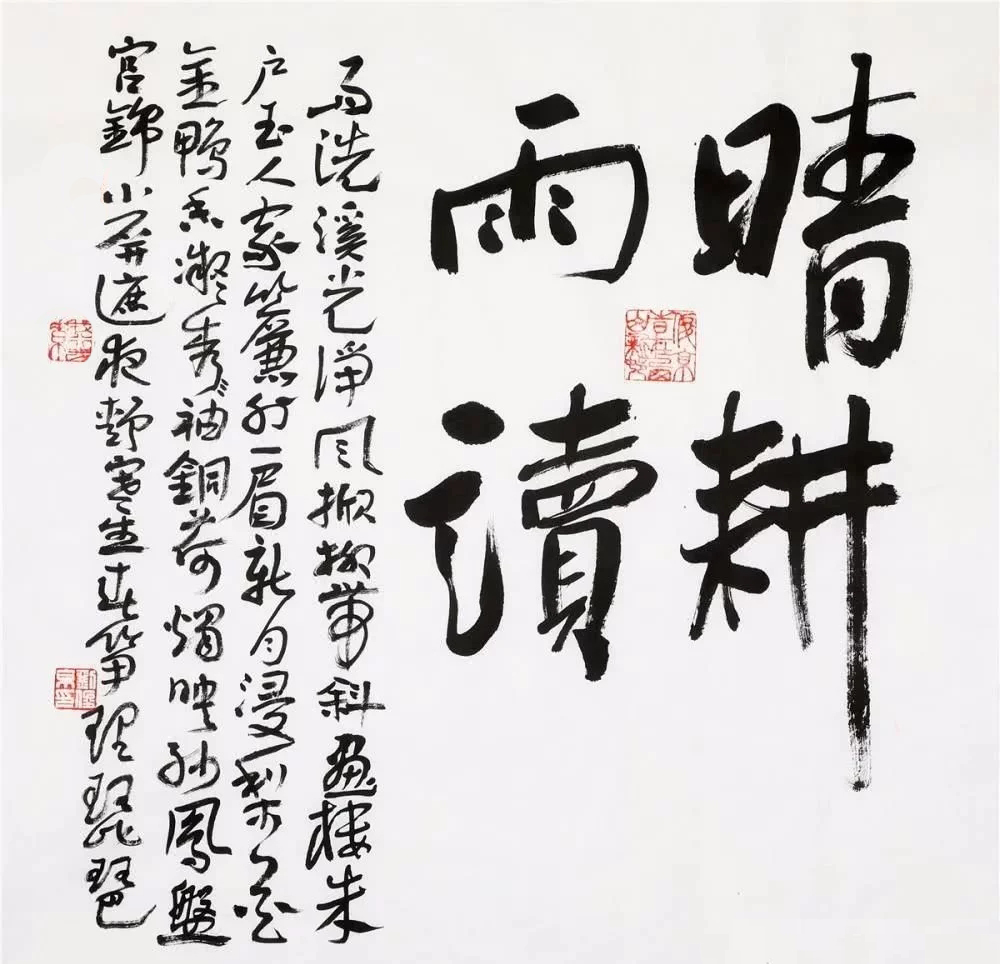 晴耕
雨讀
雨洗溪光淨风掀柳帶斜畫樓朱
户玉人家簾外一眉新月浸梨花
金鴨香凝秀袖銅荷燭映紗鳳盤
宫錦小屏遮夜靜寒生春笋理琵琶